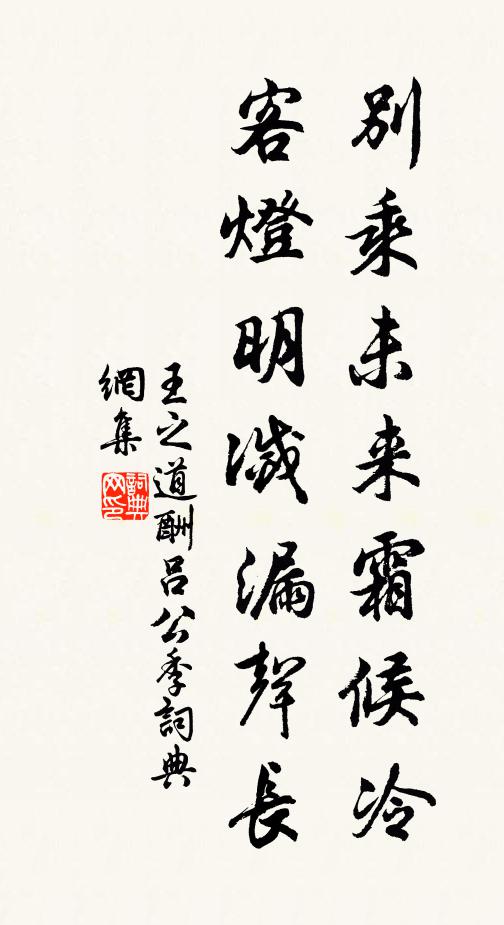 別乘未来霜候冷
客燈明滅漏聲長
王之道酬呂公季詞典
網集
詞典
网印